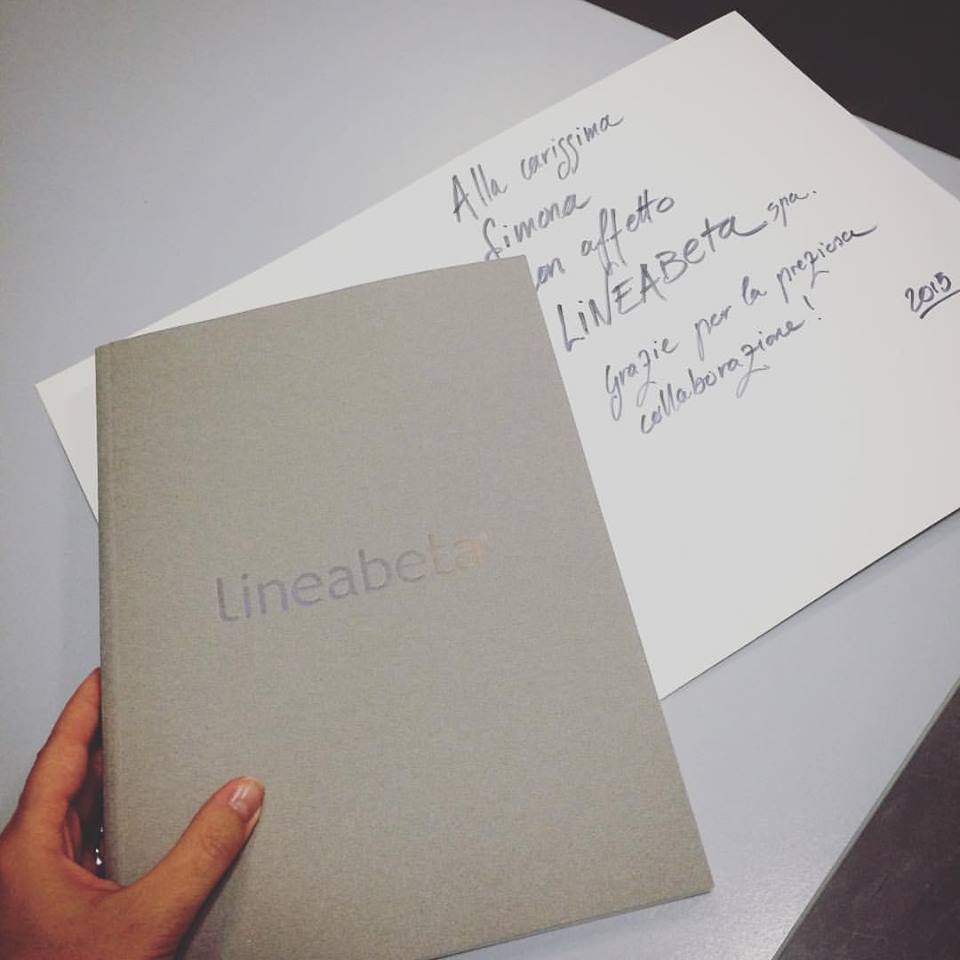 Alla carissima
Simona
con affetto
LiNEABeta spa.
Grazie per la preziosa
collaborazione!
2015
lineabeta